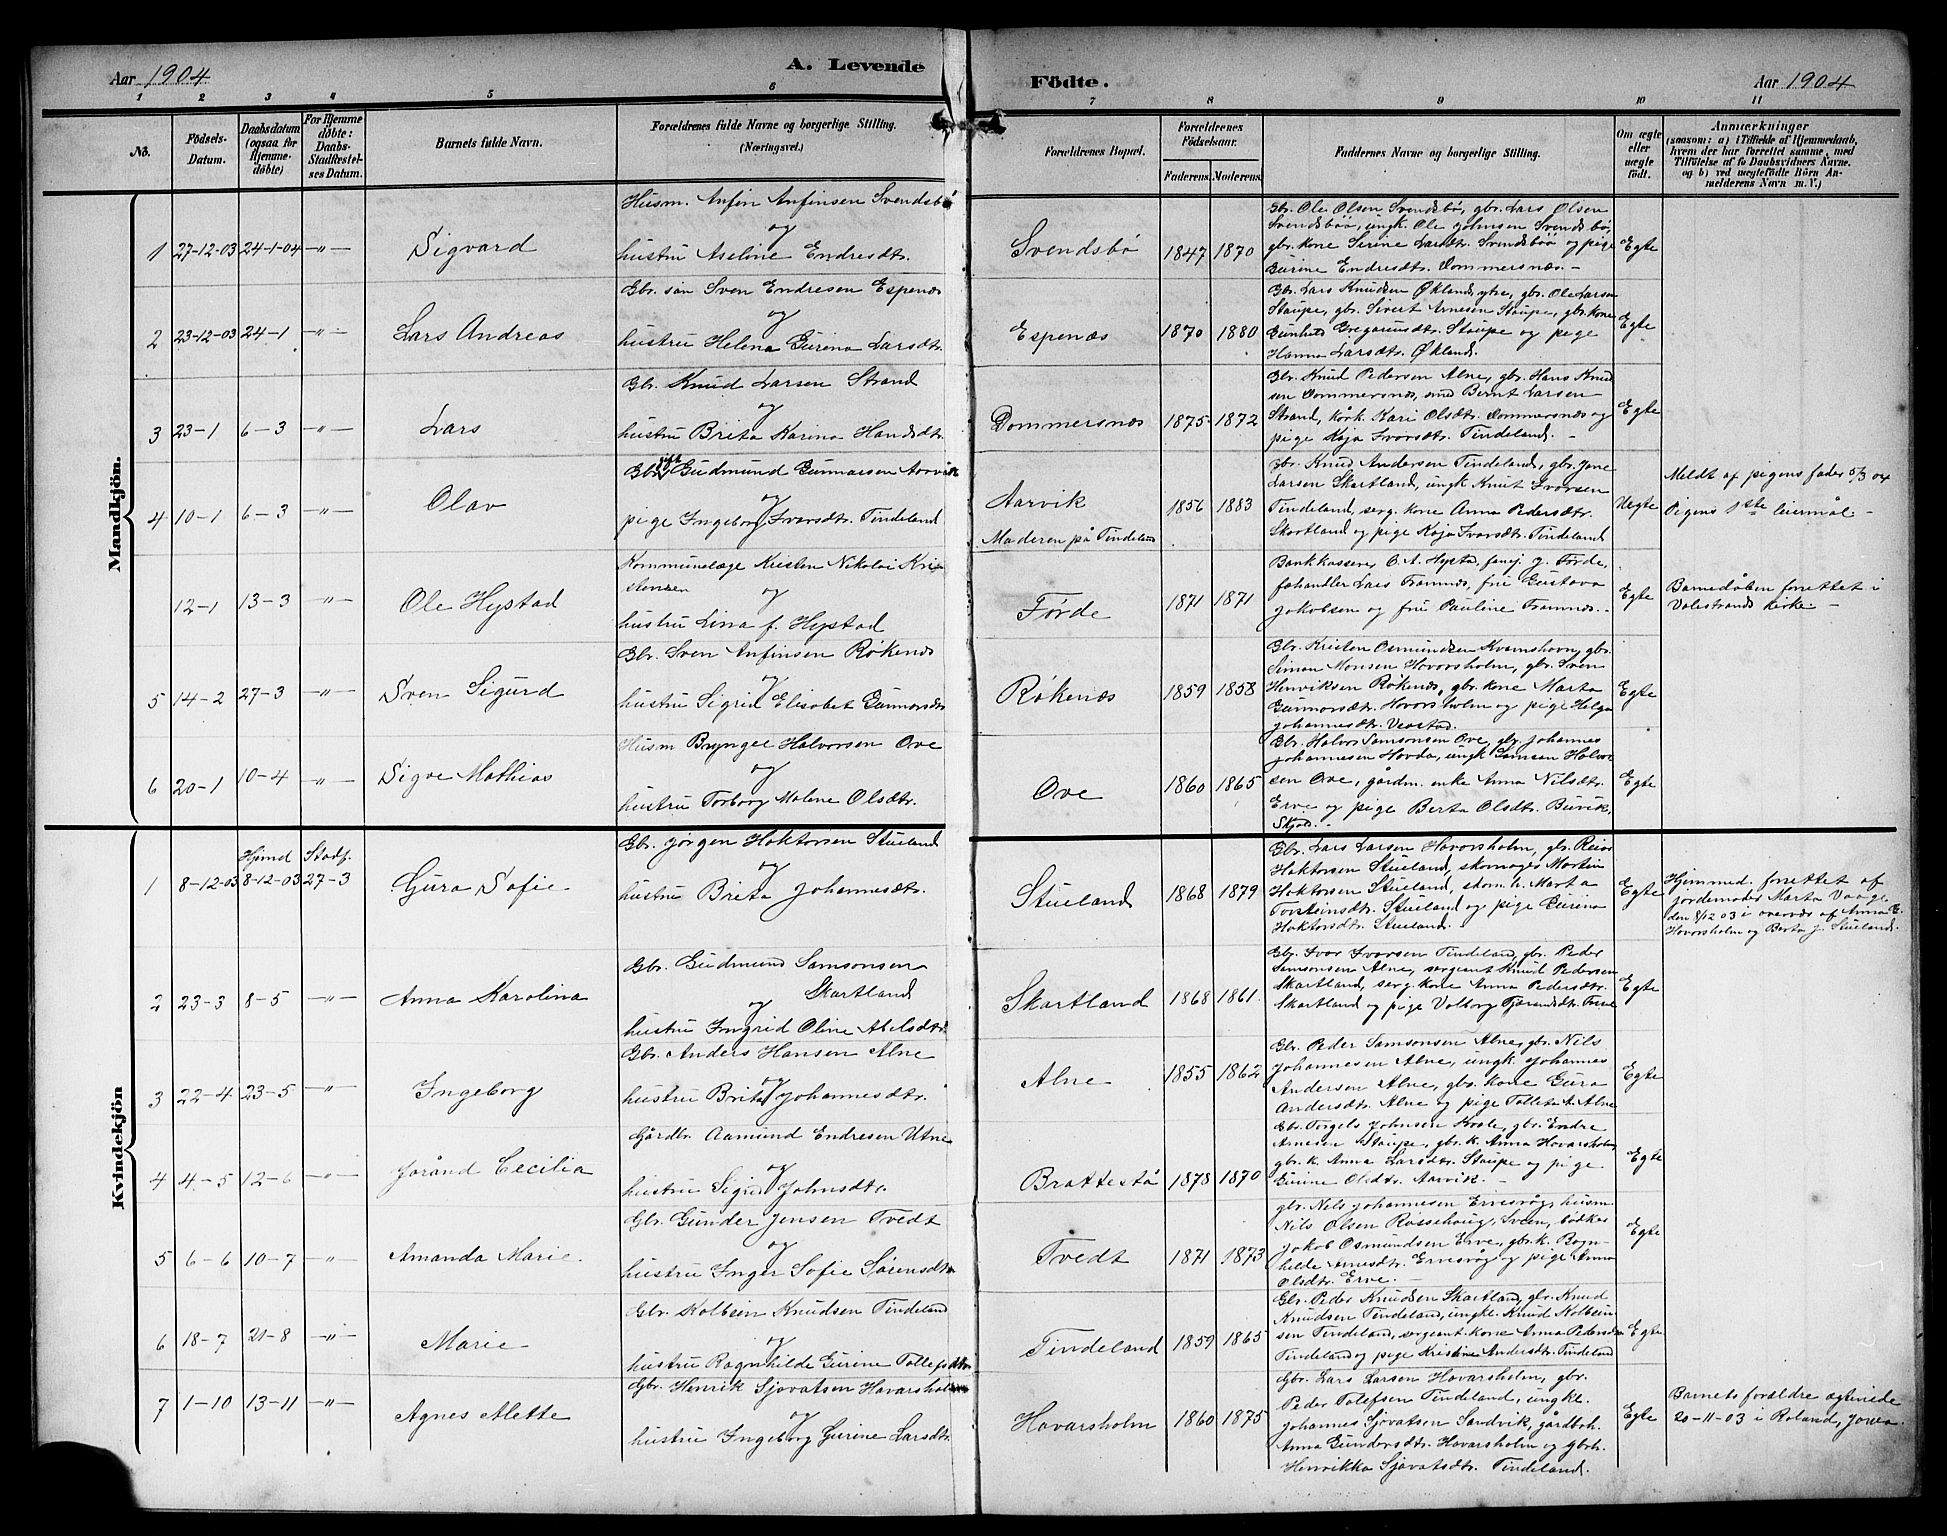 Aar 1904
A. Levende
Födte.
Aar 1904
1 2 3 4 5 6 7 8 9 10 11
No.
Födsels-
Datum.
Daabsdatum
(ogsaa for
Hjemme-
døbte)
For Hjemme
døbte:
Daabs-
Stadfestel-
ses Datum.
Barnets fulde Navn.
Forældrenes fulde Navne og borgerlige Stilling.
(Næringsvei.)
Forældrenes Bopæl.
Forældrenes
Födselsaar.
Faderens. Moderens.
Faddernes Navne og borgerlige Stilling.
Om ægte
eller
uægte
födt.
Anmærkninger
(saasom: a) i Tilfælde af Hjemmedaab,
hvem der har forrettet samme, med
Tilföielse af to Daabsvidners Navne.
og b) ved uægtefödte Börn An-
melderens Navn m. V.)
Mandkjön.
1 27-12-03 24-1-04 -"- Sigvard
Husm. Anfin Anfinsen Svendsbø
og
hustru Aseline Endresdtr.
Svendsbø 1847 1870
Gbr. Ole Olsen Svendsbø, gbr. Lars Olsen
Svendsbøø, ungk. Ole Johnsen Svendsbø,
gbr. kone Serine Larsdtr. Svendsbøø og pige
Gurine Endresdtr. Dommersnæs. -
Egte
2 23-12-03 24-1 -"- Lars Andreas
Gbr. søn Sven Endresen Espenæs
og
hustru Helena Gurina Larsdtr.
Espenæs 1870 1880
Gbr. Lars Knudsen Økland, ytre, gbr. Ole Larsen
Staupe, gbr. Sivert Arnesen Staupe, gbr. kone
Gunhild Gregariusdtr. Staupe og pige
Hanna Larsdtr. Økland.
Egte
3 23-1 6-3 -"- Lars
Gbr. Knud Larsen Strand
og
hustru Brita Karina Hansdtr.
Dommersnæs 1875 1872
Gbr. Knud Pedersen Alne, gbr. Hans Knud
sen Dommersnæs, smd Bernt Larsen
Strand, kårk. Kari Olsdtr. Dommersnæs og
pige Kaja Ivarsdtr. Tindeland. -
Egte
4 10-1 6-3 -"- Olav
Gbr. gift Gudmund Gunnarsen Aarvik
og
pige Ingeborg Ivarsdtr. Tindeland
Aarvik
Moderen på Tindeland
1856 1883
Gbr. Knud Andersen Tindeland, gbr. Jone
Larsen Skartland, ungk. Knut Ivarsen
Tindeland, serg. kone Anna Pedersdtr.
Skartland og pige Kaja Ivarsdtr. Tindeland
Uegte
Meldt af pigens fader 5/3 04
Pigens 1ste leiermål -
12-1 13-3 -"- Ole Hystad
Kommunelæge Kristen Nikolai Kri-
stensen og
hustru Lina f. Hystad
Førde 1871 1871
Bankkasserer O. A. Hystad, fanej. J. Førde,
fahandler Lars Tramnæs, frue Gustava
Jakobsen og frue Pauline Tramnæs. -
Egte
Barnedåben forrettet i
Valestrands kirke -
5 14-2 27-3 -"- Sven Sigurd
Gbr. Sven Anfinsen Røkenæs
og
hustru Sigrid Elisabet Gunnarsdtr
Røkenæs 1859 1858
Gbr. Kristen Osmundsen Kvamshovn, gbr.
Simon Monsen Havarsholm, gbr. Sven
Henriksen Røkenæs, gbr. kone Marta
Gunnarsdtr. Havarsholm og pige Helga
Johannesdtr. Veastad.
Egte
6 20-1 10-4 -"- Sigve Mathias
Husm Bryngel Halvorsen Ove
og
hustru Torborg Malene Olsdtr.
Ove 1860 1865
Gbr. Halvor Samsonsen Ove, gbr. Johannes
Johannesen Hovda, ungk Samson Halvor
sen Ove, gårdm. enke Anna Nilsdtr.
Erve og pige Berta Olsdtr. Buvik,
Skjold. -
Egte
Kvindekjön
1 8-12-03 Hjemd 8-12-03 Stadf. 27-3 Gura Sofie
Gbr. Jørgen Haktorsen Stueland
og
hustru Brita Johannesdtr.
Stueland 1868 1879
Gbr. Lars Larsen Havarsholm, gbr. Reior
Haktorsen Stueland, skomager Martin
Haktorsen Stueland, skom. h. Marta
Torsteinsdtr. Stueland og pige Gurina
Haktorsdtr. Stueland.
Egte
Hjemmed. forrettet af
jordemoder Marta Vaage
den 8/12 03 i overvær af Anna E.
Havarsholm og Berta J. Stueland.
2 23-3 8-5 -"- Anna Karolina
Gbr. Gudmund Samsonsen
Skartland
og
hustru Ingrid Oline Akselsdtr.
Skartland 1868 1861
Gbr. Ivar Ivarsen Tindeland, gbr. Peder
Samsonsen Alne, sergeant Knud Pedersen
Skartland, serg. kone Anna Pedersdtr.
Skartland og pige Valborg Tjerandsdtr.
Egte
3 22-4 23-5 -"- Ingeborg
Gbr. Anders Hansen Alne
og
hustru Brita Johannesdtr.
Alne 1855 1862
Gbr. Peder Samsonsen Alne, gbr. Nils
Johannesen Alne, ungk. Johannes
Andersen Alne, gbr. kone Gura
Andersdtr. Alne og pige Tolleta A. Alne
Egte
4 4-5 12-6 -"- Jorånd Cecilia
Gårdbr. Aamund Endresen Utne
og
hustru Sigrid Johnsdtr.
Brattestø 1878 1870
Gbr. Torgels Johnsen Kvale, gbr. Endre
Arnesen Staupe, gbr. k. Anna Havarsholm,
gbr. k. Anna Larsdtr. Staupe og pige
Gurine Olsdtr. Aarvik. -
Egte
5 6-6 10-7 -"- Amanda Marie.
Gbr. Gunder Jensen Tvedt
og
hustru Inger Sofie Sørensdtr
Tvedt 1871 1873
gbr. Nils Johannesen Ervesvåg, husm.
Nils Olsen Rossehaug, Sveen, bødker
Jakob Osmundsen Erve, gbr. k. Ragn-
hilde Arnesdtr. Ervesvåg og pige Anna
Olsdtr. Erve. -
Egte
6 18-7 21-8 -"- Marie
Gbr. Kolbein Knudsen Tindeland
og
hustru Ragnhilde Gurine Tollefsdtr.
Tindeland 1859 1865
Gbr. Peder Knudsen Skartland, gbr. Knud
Knudsen Tindeland, ungk. Knud Kolbein
sen Tindeland, sergeant. kone Anna Pedersdtr
Tindeland og pige Kristine Andersdtr. Tindeland
Egte
7 1-10 13-11 -"- Agnes Alette
Gbr. Henrik Sjovatsen Havarsholm
og
hustru Ingeborg Gurine Larsdtr.
Havarsholm 1860 1875
Gbr. Lars Larsen Havarsholm, gbr.
Peder Tolefsen Tindeland, ungke.
Johannes Sjovatsen Sandvik, gårdbrh.
Anna Gundersdtr. Havarsholm og gbrh.
Henrikka Sjovatsdtr. Tindeland.
Egte
Barnets forældre ægteviede
20-11-03 i Roland, Jowa.